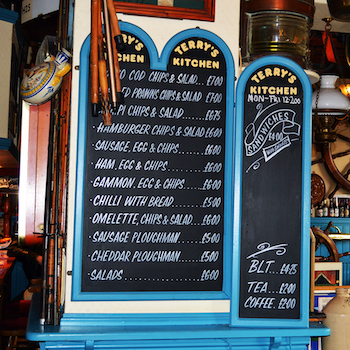 TERRY'S
KITCHEN
TERRY'S
KITCHEN
COD CHIPS & SALAD... £700
PRAWNS CHIPS & SALAD £700
CHIPS & SALAD £675
HAMBURGER CHIPS & SALAD £600
SAUSAGE, EGG & CHIPS £600
HAM, EGG & CHIPS £600
GAMMON, EGG & CHIPS £600
CHILLI WITH BREAD £500
OMELETTE, CHIPS & SALAD £600
SAUSAGE PLOUGHMAN £500
CHEDDAR PLOUGHMAN £500
SALADS £600
TERRY'S
KITCHEN
MON-FRI 12-2.00
SANDWICHES
£400
BLT £425
TEA £200
COFFEE £200